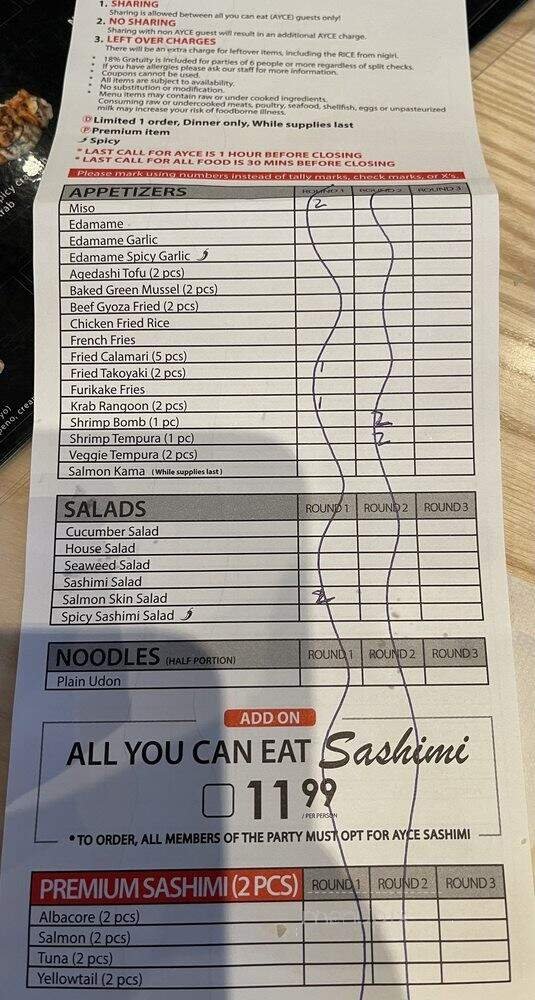 1. SHARING
Sharing is allowed between all you can eat (AYCE) guests only!
2. NO SHARING
Sharing with non AYCE guest will result in an additional AYCE charge.
3. LEFT OVER CHARGES
There will be an extra charge for leftover items, including the RICE from nigiri.
* 18% Gratuity is included for parties of 6 people or more regardless of split checks.
* If you have allergies please ask our staff for more information.
* Coupons cannot be used.
* All items are subject to availability.
* No substitution or modification.
* Menu items may contain raw or under cooked ingredients.
Consuming raw or undercooked meats, poultry, seafood, shellfish, eggs or unpasteurized
milk may increase your risk of foodborne illness.
Ⓓ Limited 1 order, Dinner only, While supplies last
Ⓟ Premium item
Spicy
* LAST CALL FOR AYCE IS 1 HOUR BEFORE CLOSING
* LAST CALL FOR ALL FOOD IS 30 MINS BEFORE CLOSING
Please mark using numbers instead of tally marks, check marks, or X's.
APPETIZERS ROUND 1 ROUND 2 ROUND 3
Miso 2
Edamame
Edamame Garlic
Edamame Spicy Garlic
Agedashi Tofu (2 pcs)
Baked Green Mussel (2 pcs)
Beef Gyoza Fried (2 pcs)
Chicken Fried Rice
French Fries
Fried Calamari (5 pcs)
Fried Takoyaki (2 pcs) 1
Furikake Fries
Krab Rangoon (2 pcs) 1
Shrimp Bomb (1 pc) 2
Shrimp Tempura (1 pc) 2
Veggie Tempura (2 pcs)
Salmon Kama (While supplies last)
SALADS ROUND 1 ROUND 2 ROUND 3
Cucumber Salad
House Salad
Seaweed Salad
Sashimi Salad
Salmon Skin Salad 2
Spicy Sashimi Salad
NOODLES (HALF PORTION) ROUND 1 ROUND 2 ROUND 3
Plain Udon
ADD ON
ALL YOU CAN EAT Sashimi
11 99
/PER PERSON
* TO ORDER, ALL MEMBERS OF THE PARTY MUST OPT FOR AYCE SASHIMI
PREMIUM SASHIMI (2 PCS) ROUND 1 ROUND 2 ROUND 3
Albacore (2 pcs)
Salmon (2 pcs)
Tuna (2 pcs)
Yellowtail (2 pcs)